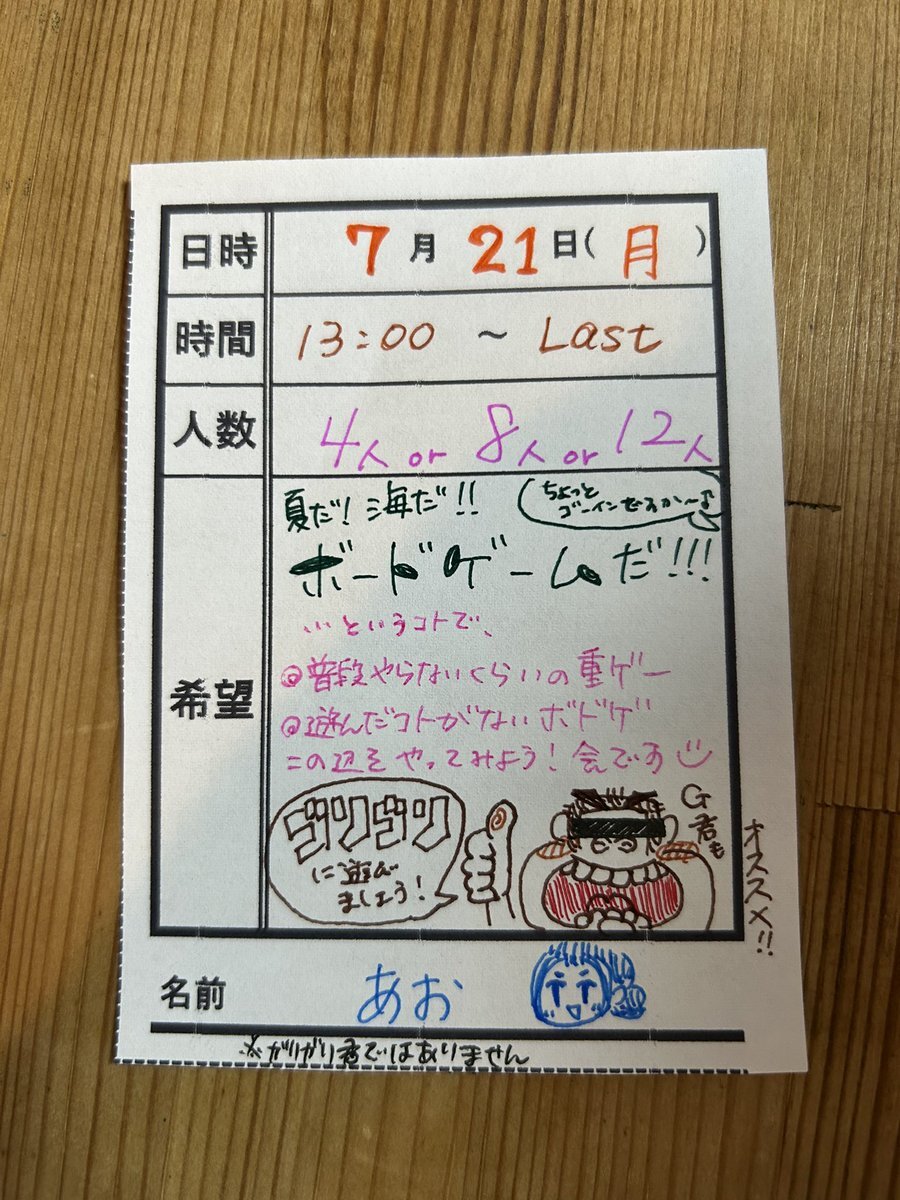 日時 7月21日(月)
時間 13:00 ~ Last
人数 4人 or 8人 or 12人
希望
夏だ!海だ!!
ちょっと
ゴーインですか〜♪
ボードゲームだ!!!
…というコトで、
◎普段やらないくらいの重ゲー
◎遊んだコトがないボドゲ
この辺をやってみよう!会です
ゴリゴリ
に遊び
ましょう!
G君も
オススメ!!
名前 あお
※ガリガリ君ではありません